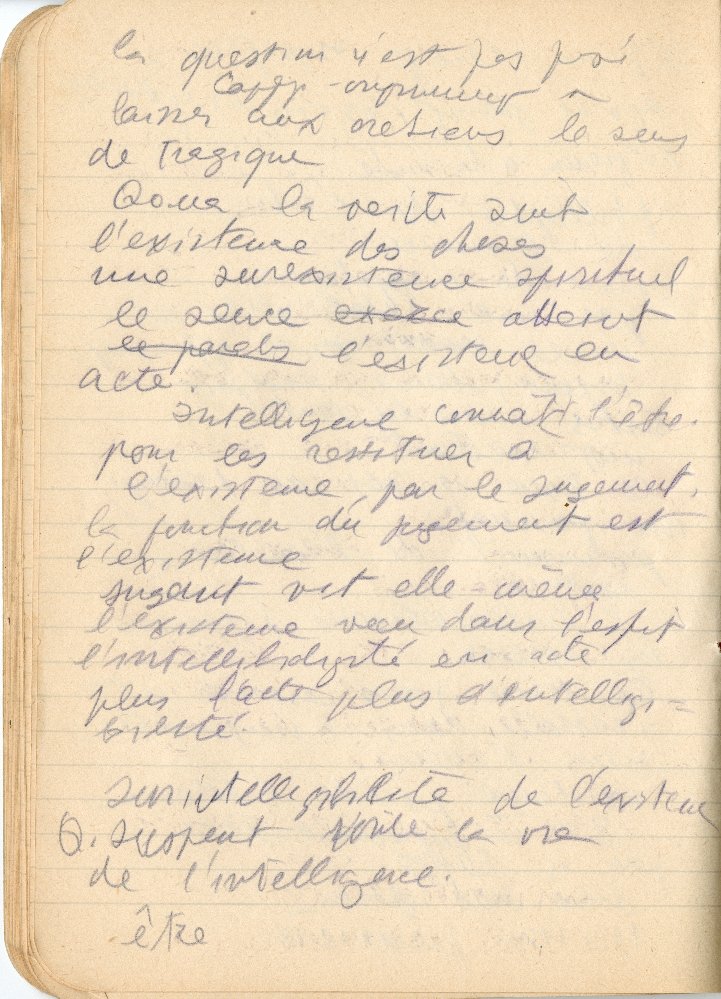 la question n'est pas
laisser aux le sens
de Tragique
la verité suit
l'existence des choses
une surexistence spirituel
le sence atteint
l'existence en
acte
Intelligence connaît l'être.
pour les restituer a
l'existence, par le Jugement.
la fonction du jugement est
l'existence
Jugeant vit elle-même
l'existence vecu dans l'esprit
en acte
plus l'acte plus d'intelligi=
bilité.
Surintelligibilité de l'existence
Q. la vie
de l'intelligence.
être